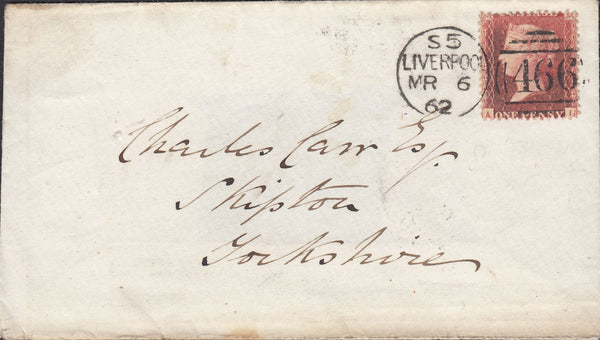 S5
LIVERPOOL
MR 6
62
466
A ONE PENNY G
Charles Carr Esq.
Skipton
Yorkshire